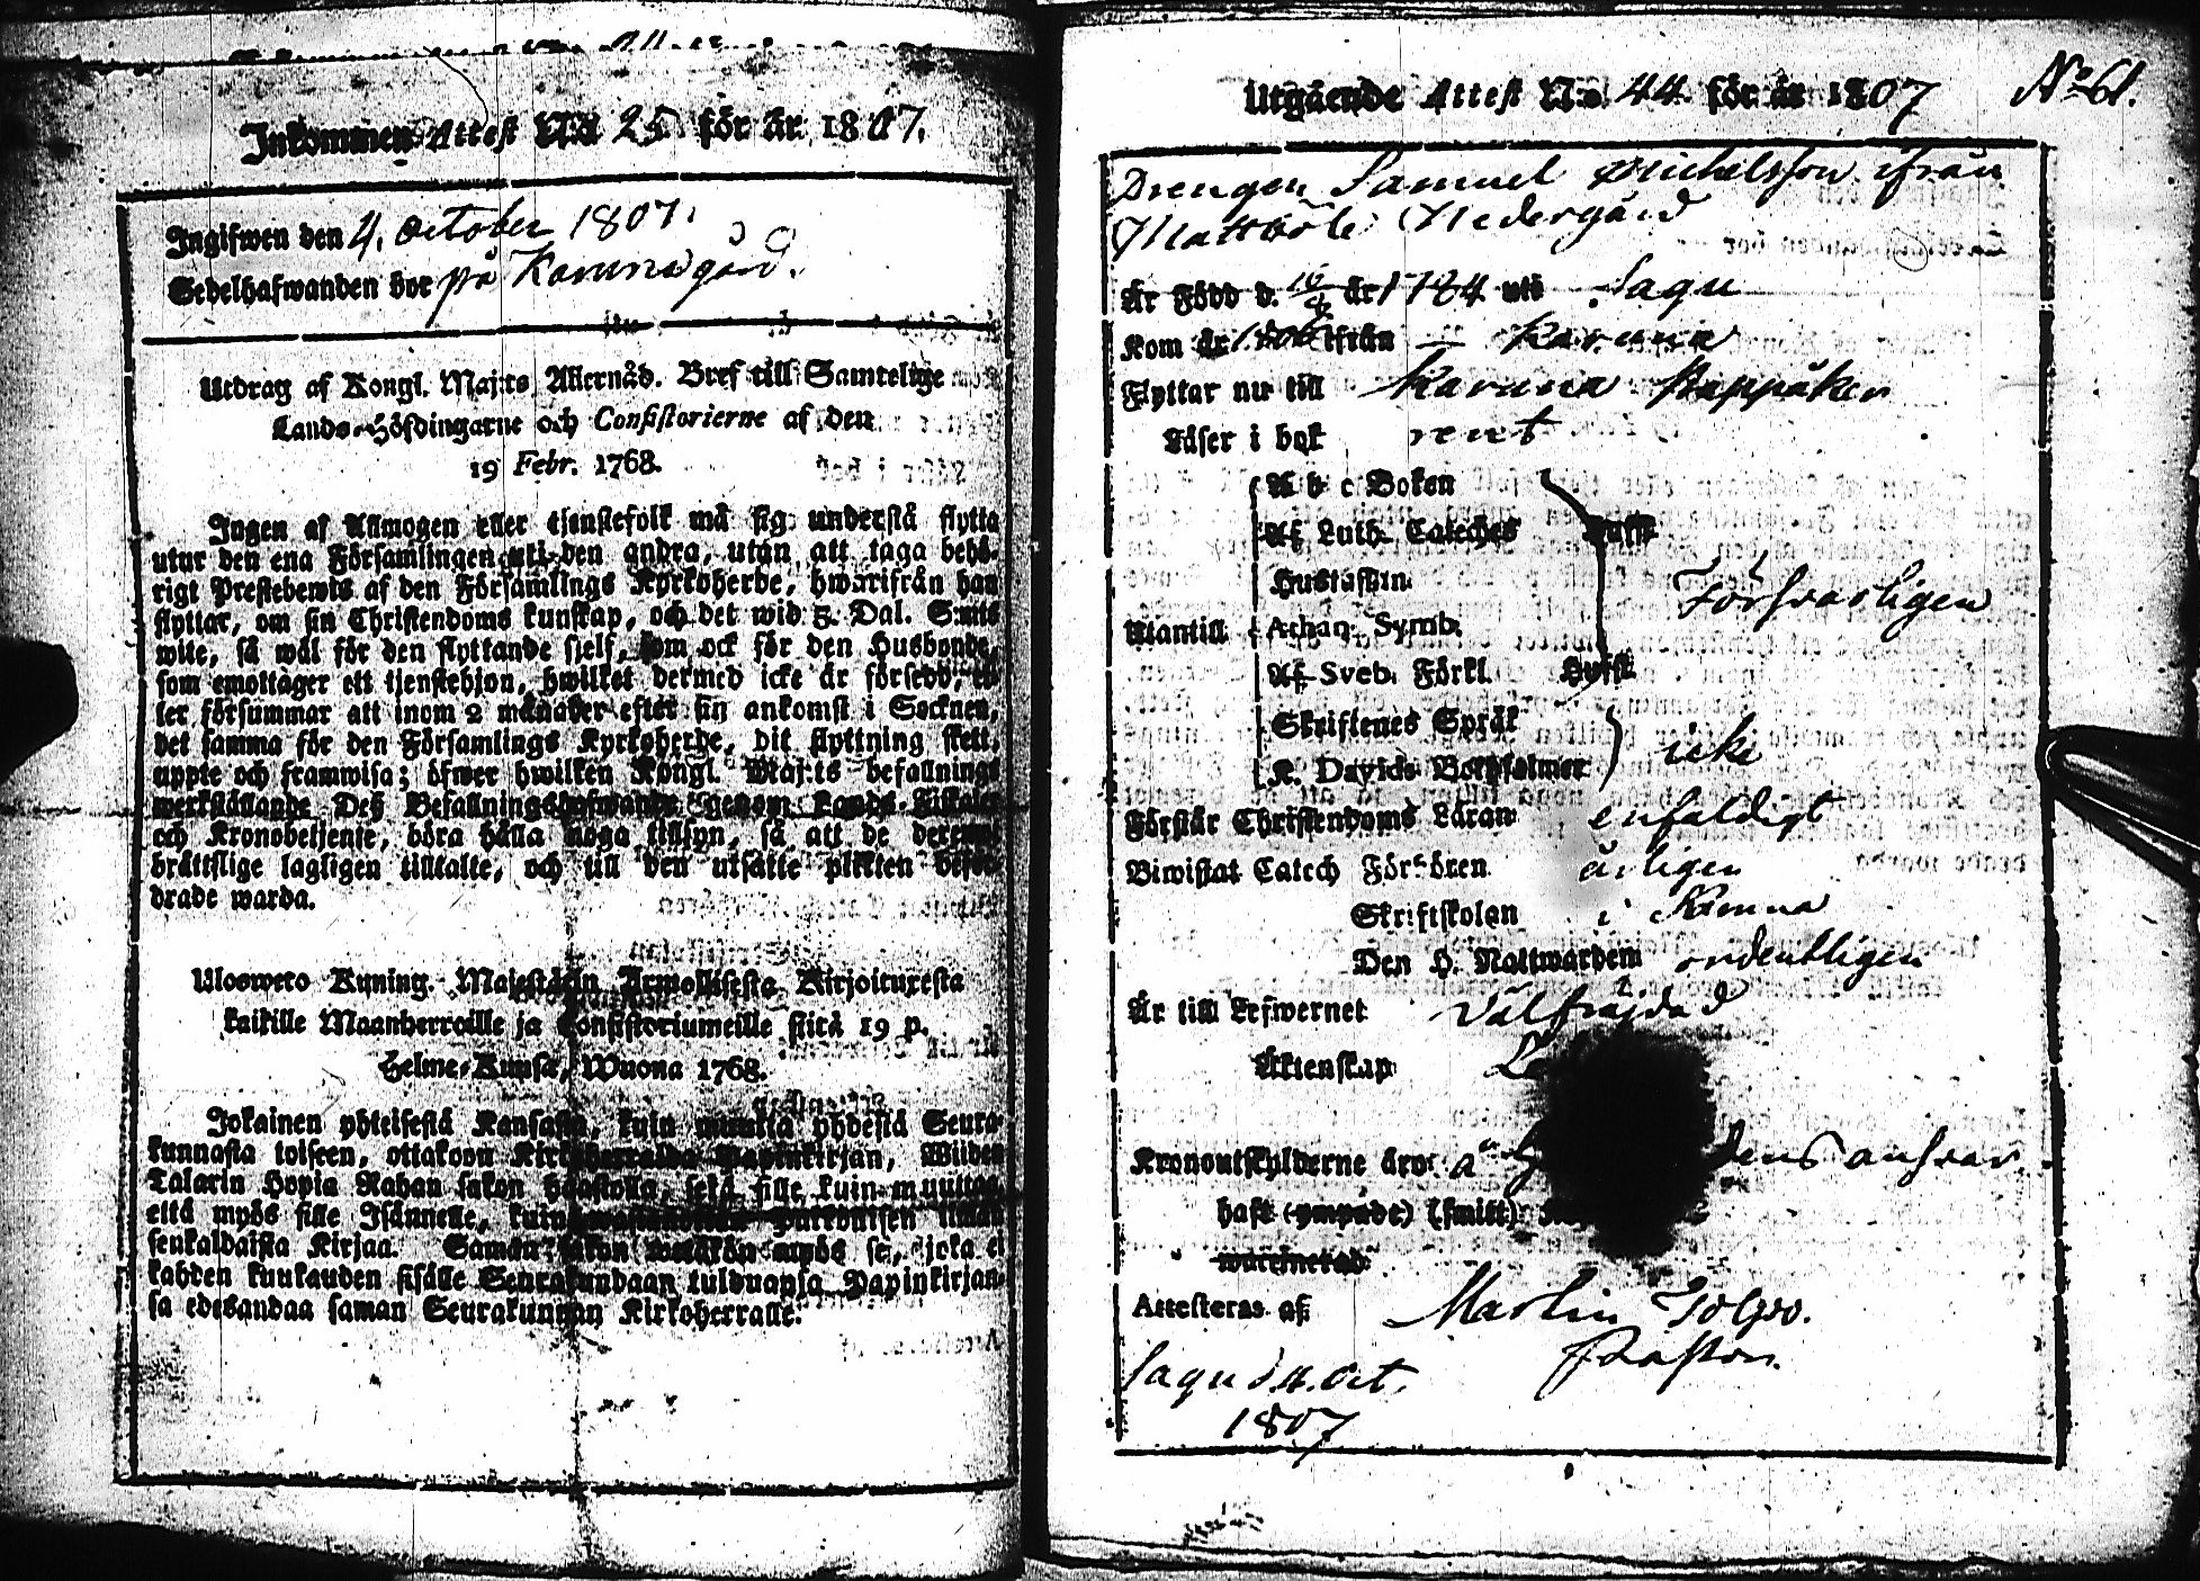 Inkommen Attest N:o 25 för år 1807.
Ingifwen den 4. October 1807.
Sedelhafwanden bor på Karuna gård.
Utdrag af Kongl. Maj:ts Allernåd. Bref till Samtelige
Lands-Höfdingarne och Consistorierne af den
19 Febr. 1768.
Ingen af Allmogen eller tjenstefolk må sig understå flytta
utur den ena Församlingen uti den andra, utan att taga behö-
rigt Prestebewis af den Församlings Kyrkoherde, hwarifrån han
flyttar, om sin Christendoms kunskap, och det wid 5. Dal. S:mts
wite, så wäl för den flyttande sjelf, som ock för den Husbonde,
som emottager ett tjenstehjon, hwilket dermed icke är försedd, el-
ler försummar att inom 2 månader efter sin ankomst i Socknen,
det samma för den Församlings Kyrkoherde, dit flyttning skett,
uppte och framwisa; öfwer hwilken Kongl. Maj:ts befallnings
werkställande Deß Befallningshafwande genom Lands-Fiskaler
och Kronobetjente, böra hålla noga tillsyn, så att de deremot
bråttslige lagligen tilltalte, och till den utsatte plikten befor-
drade warda.
Uloswete Kuning. Majestätin Armollisesta Kirjoituxesta
kaikille Maanherroille ja Consistoriumeille siitä 19 p.
Helme-Kuusa, Wuona 1768.
Jokainen yhteisestä Kansasta, kuin muutta yhdestä Seura-
kunnasta toiseen, ottakoon Kirkoherralda Papinkirjan, Wiiden
Talarin Hopia Rahan sakon haastolla, sekä sille kuin muuttaa,
että myös sille Isännelle, kuin ilman
senkaldaista Kirjaa. Saman sakon wetäkön myös se, joka ei
kahden kuukauden sisälle Seurakundaan tulduansa Papinkirjan-
sa edesandaa saman Seurakunnan Kirkoherralle.
Utgående Attest N:o 44 för år 1807
No 61.
Drengen Samuel Michelsson ifrån
Mattböle Nedergård
Är Född d. 16/9 år 1784 uti Sagu
Kom år 1806 ifrån Karuna
Flyttar nu till Karuna Rappåker
Läser i bok rent
A b c Boken
Af Luth. Cateches Hufsk.
Hustaflan
Försvarligen
Utantill Athan. Symb.
Af Sveb. Förkl. Hufsk.
Skriftenes Språk
icke
K. Davids Botpsalmer
Förstår Christendoms Läran enfaldigt
Biwistat Catech Förhören årligen
Skriftskolan i Karuna
Den H. Nattwarden ordentligen
Är till Lefwernet välfräjdad
Äktenskap
Kronoutskylderne äro å dens ansvar
haft (ympade) (smitt)
Attesteras af Martin Tolpo.
Pastor.
Sagu d. 4. Oct.
1807